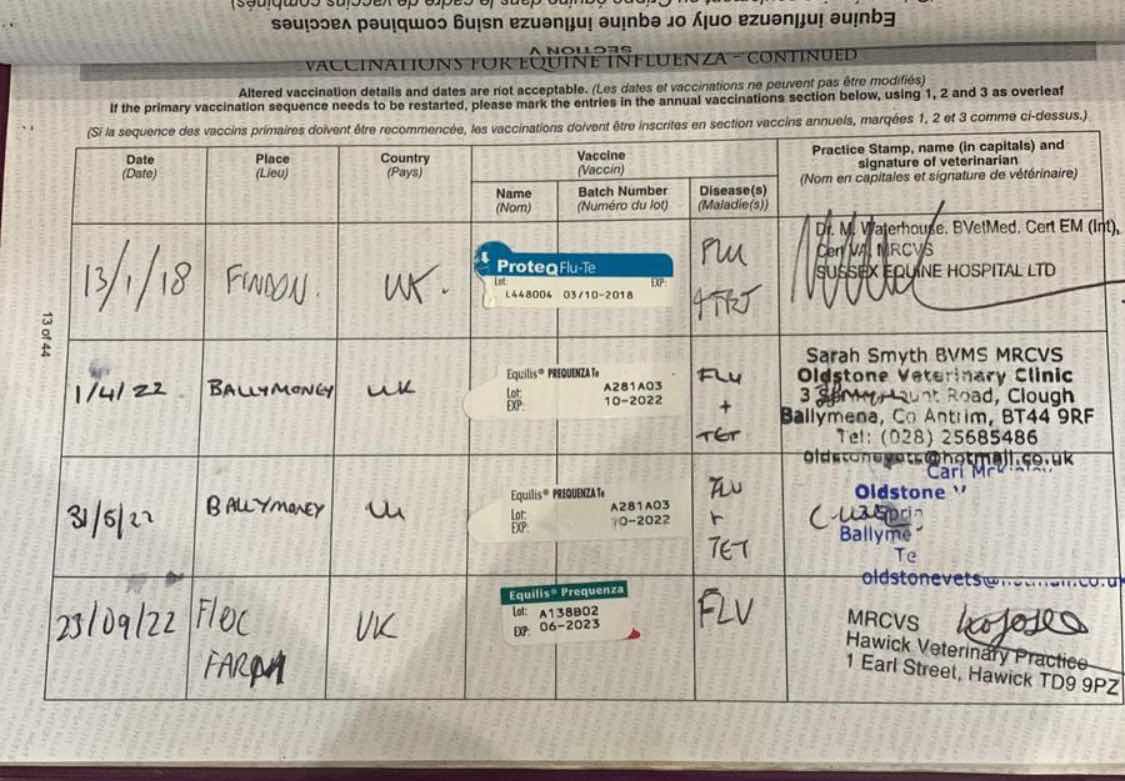 Equine influenza only or equine influenza using combined vaccines
SECTION V
VACCINATIONS FOR EQUINE INFLUENZA – CONTINUED
Altered vaccination details and dates are not acceptable. (Les dates et vaccinations ne peuvent pas être modifiés)
If the primary vaccination sequence needs to be restarted, please mark the entries in the annual vaccinations section below, using 1, 2 and 3 as overleaf
(Si la sequence des vaccins primaires doivent être recommencée, les vaccinations doivent être inscrites en section vaccins annuels, marqées 1, 2 et 3 comme ci-dessus.)
Date
(Date)
Place
(Lieu)
Country
(Pays)
Vaccine
(Vaccin)
Name
(Nom)
Batch Number
(Numéro du lot)
Disease(s)
(Maladie(s))
Practice Stamp, name (in capitals) and
signature of veterinarian
(Nom en capitales et signature de vétérinaire)
13/1/18
FINDON.
UK.
ProteqFlu-Te
Lot: EXP:
L448004 03/10-2018
FLU
Dr. M. Waterhouse. BVetMed, Cert EM (Int),
Cert VA, MRCVS
SUSSEX EQUINE HOSPITAL LTD
13 of 44
1/4/22
BALLYMONEY
UK
Equilis® PREQUENZA Te
Lot: A281A03
EXP: 10-2022
FLU
+
TET
Sarah Smyth BVMS MRCVS
Oldstone Veterinary Clinic
3 Road, Clough
Ballymena, Co Antrim, BT44 9RF
Tel: (028) 25685486
oldstonevets@hotmail.co.uk
31/5/22
BALLYMONEY
UK
Equilis® PREQUENZA Te
Lot: A281A03
EXP: 10-2022
FLU
+
TET
Oldstone
Te
oldstonevets@hotmail.co.uk
23/09/22
FARM
UK
Equilis® Prequenza
Lot: A138B02
EXP: 06-2023
FLU
MRCVS
Hawick Veterinary Practice
1 Earl Street, Hawick TD9 9PZ